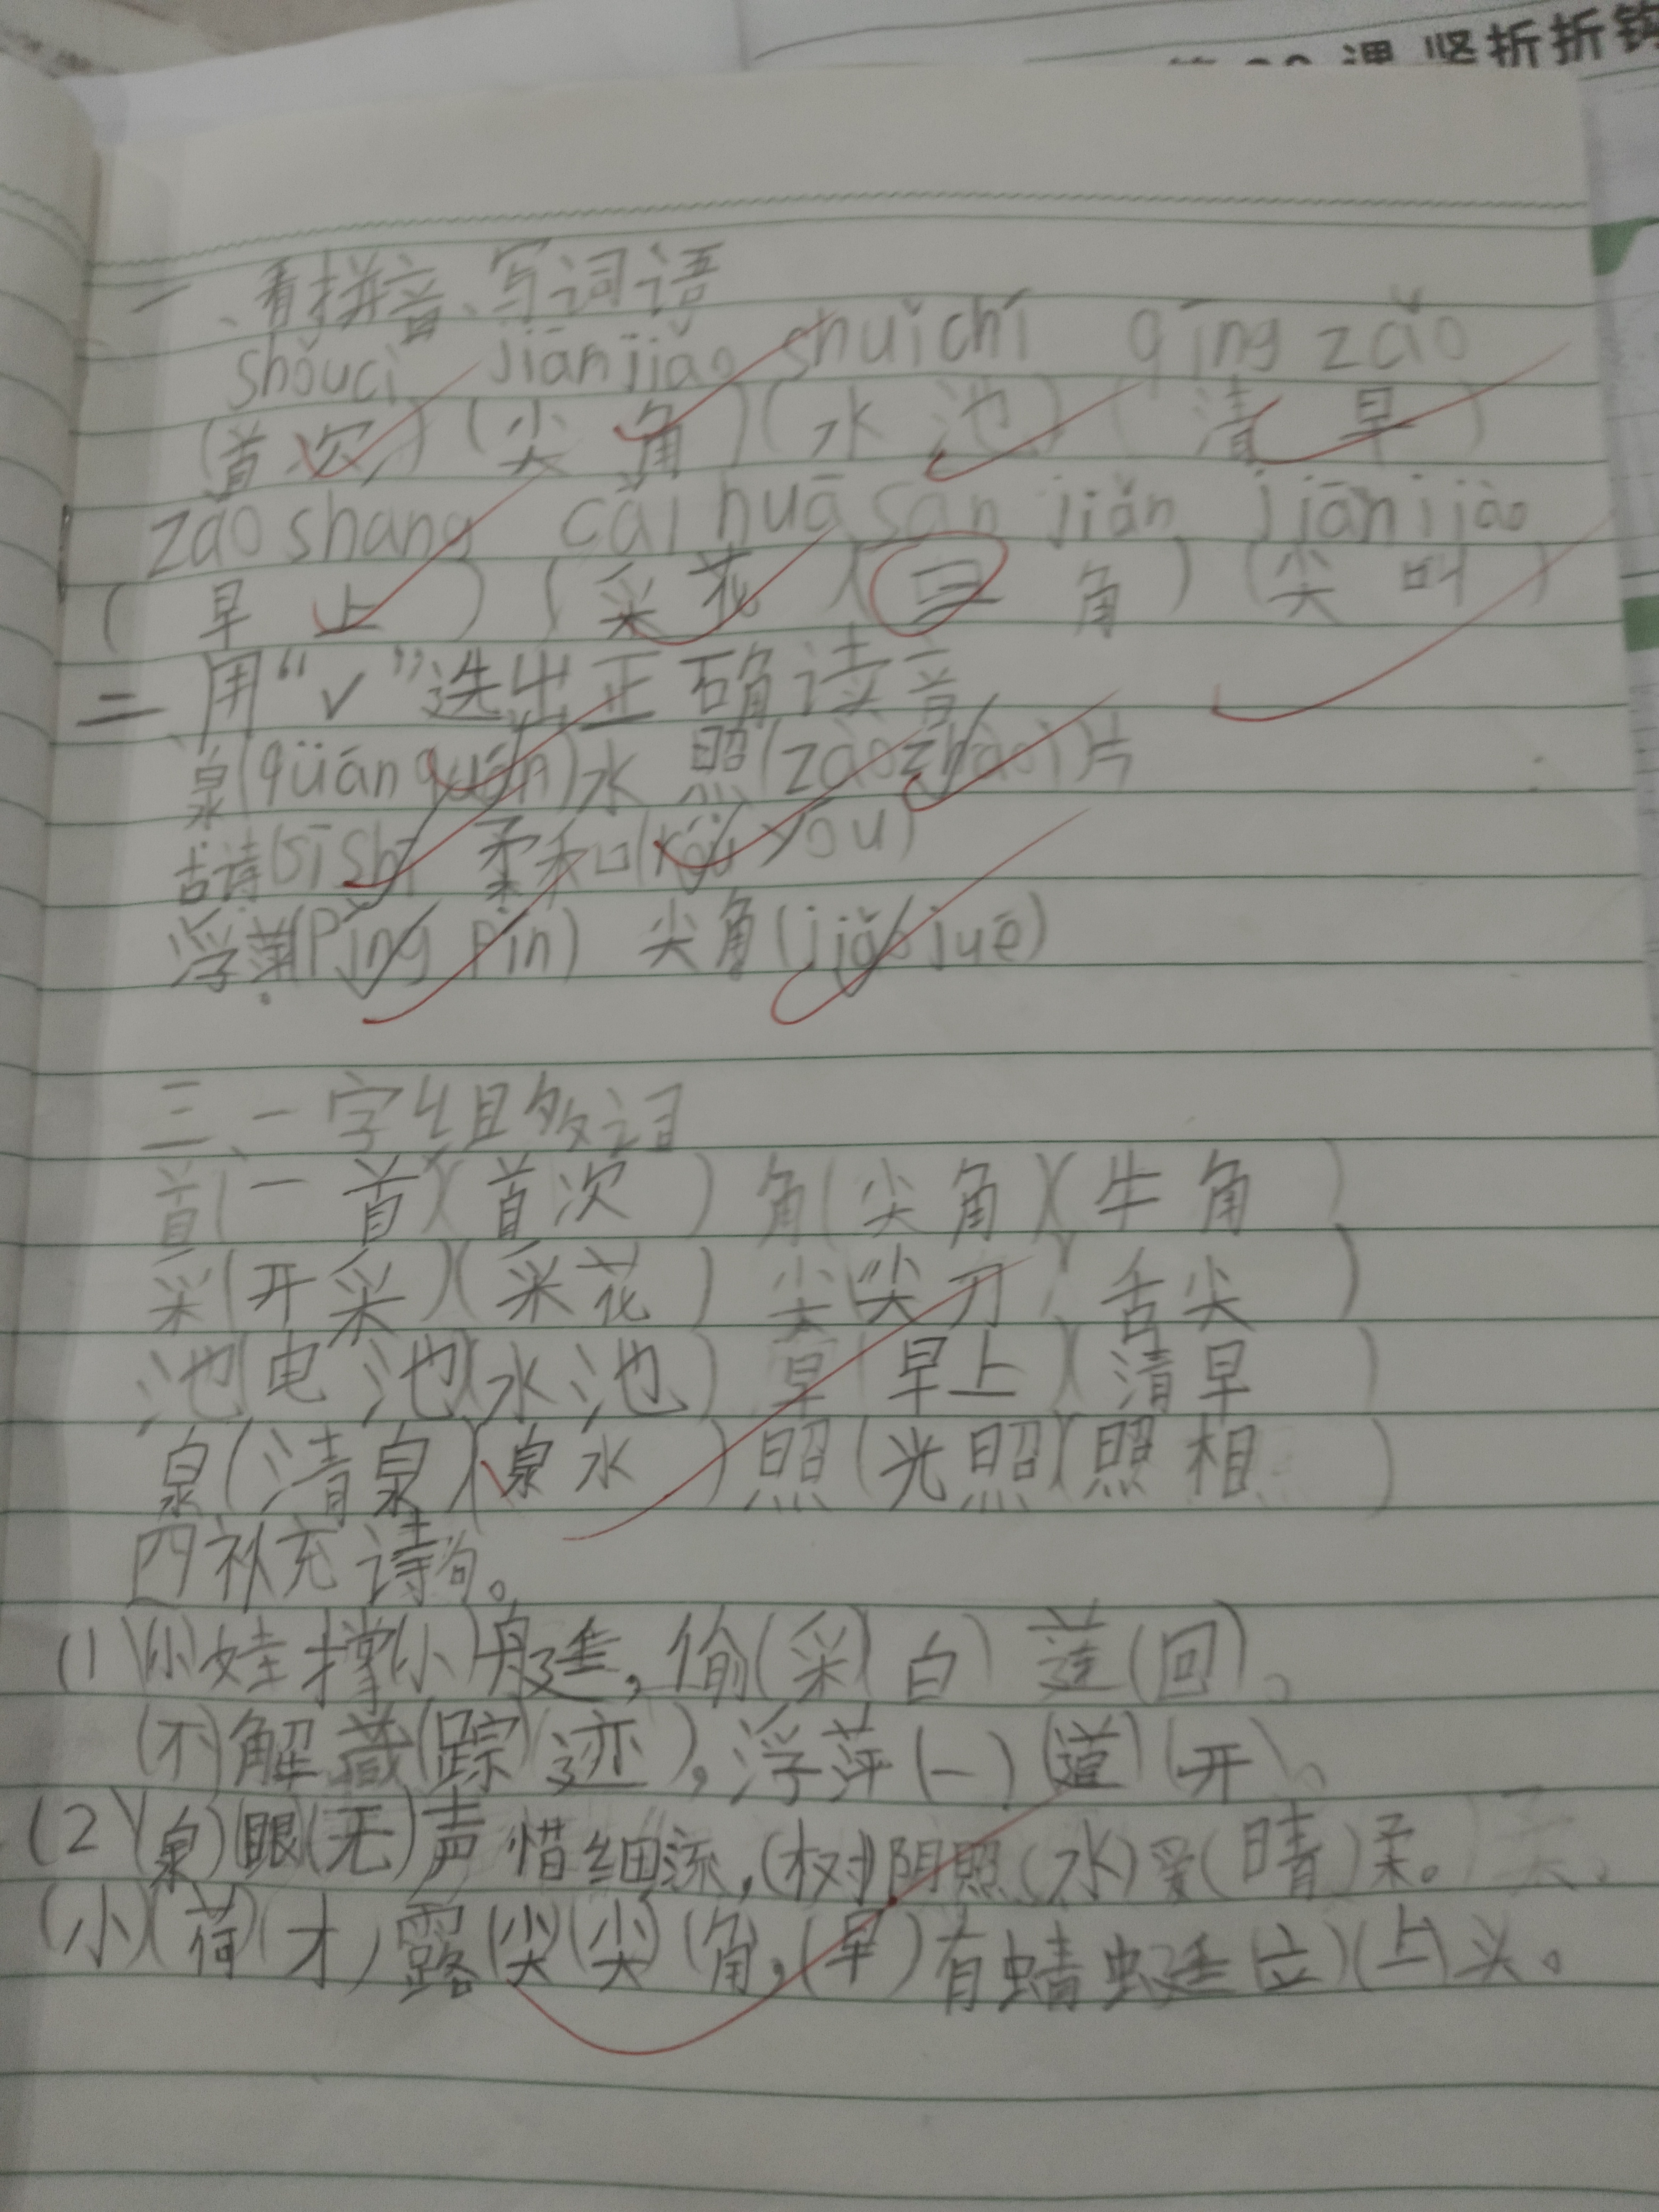 课 竖折折钩
一、看拼音、写词语
shǒucì jiānjiǎo shuǐchí qīng zǎo
(首次)(尖角)(水池)(清早)
zǎo shang cǎi huā sān jiǎn jiānjiào
(早上)(采花)(三角)(尖叫)
二 用“√”选出正确读音
泉(qüán quán)水 照(zào zhào)片
古诗(sī shī) 柔和(róu yóu)
浮萍(píng pín) 尖角(jiǎo jué)
三、一字组多词
首(一首)(首次) 角(尖角)(牛角)
采(开采)(采花) 尖(尖刀)(舌尖)
池(电池)(水池) 早(早上)(清早)
泉(清泉)(泉水) 照(光照)(照相)
四补充诗句。
(1)小娃撑(小)艇,偷(采)(白)莲(回)。
(不)解藏(踪)(迹),浮萍(一)(道)(开)。
(2)(泉)眼(无)声惜细流,(树)阴照(水)爱(晴)柔。
(小)(荷)(才)露(尖)(尖)(角,(早)有蜻蜓(立)(上)头。